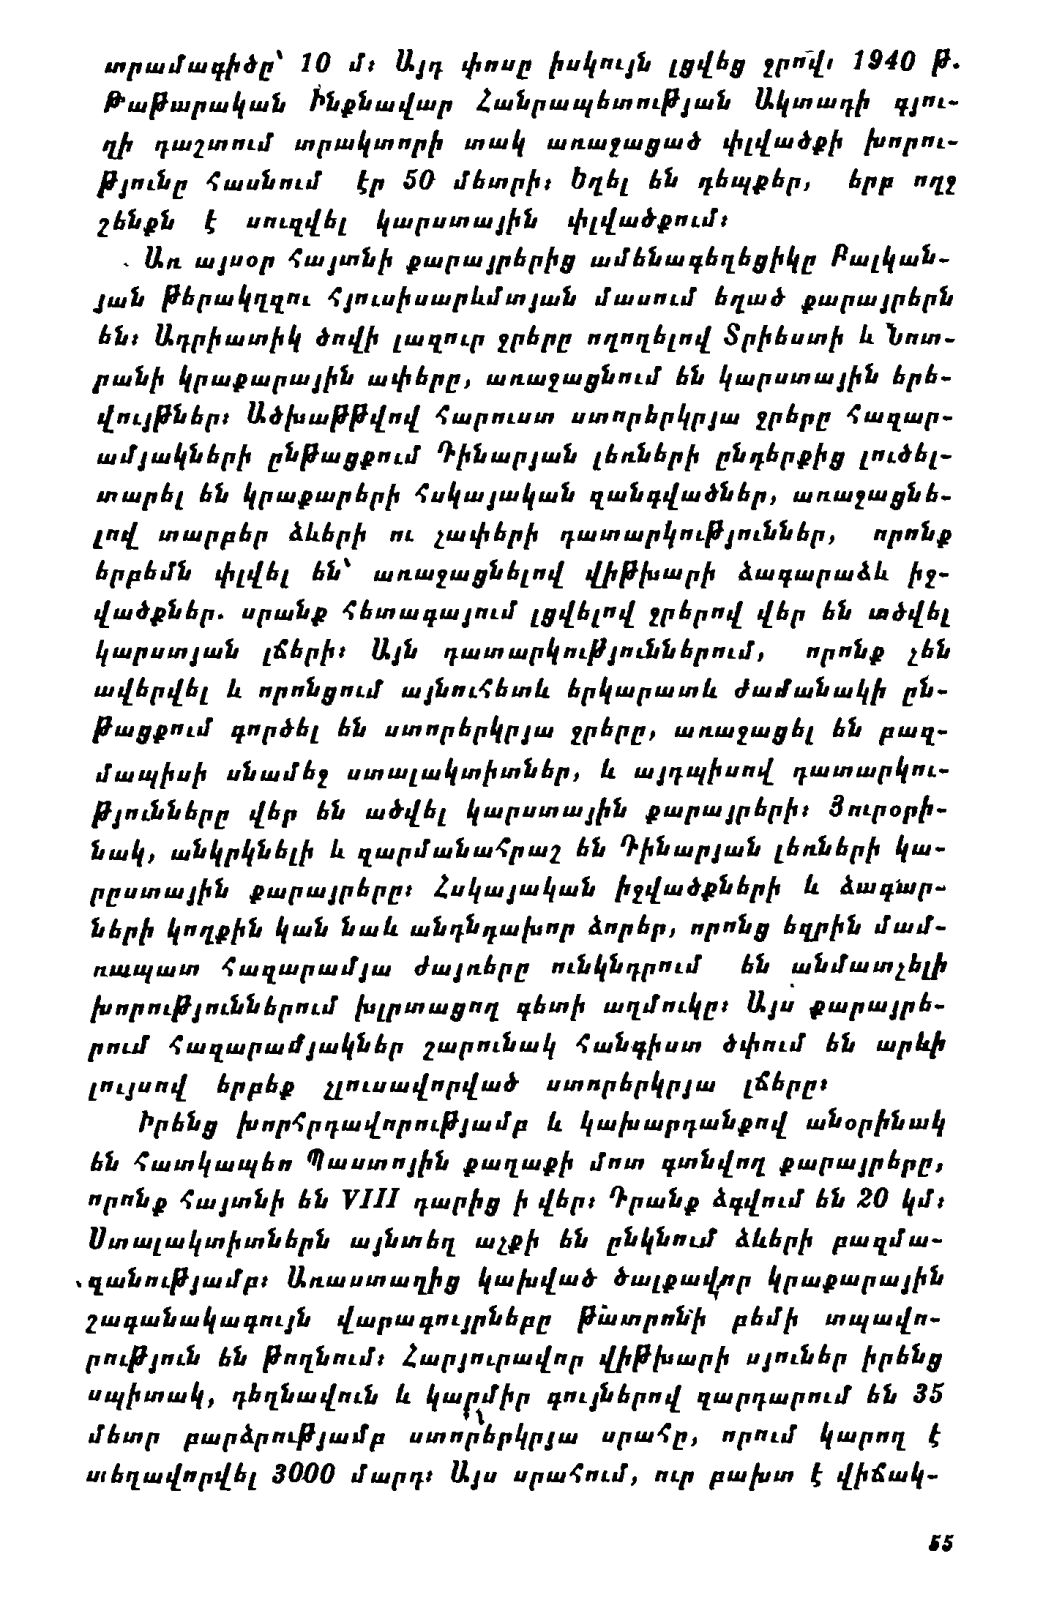 տրամագիծը՝ 10 մ։ Այդ փոսը իսկույն լցվեց ջրով։ 1940 թ.
Թաթարական Ինքնավար Հանրապետության Ակտադի գյու-
ղի դաշտում տրակտորի տակ առաջացած փլվածքի խորու-
թյունը հասնում էր 50 մետրի։ Եղել են դեպքեր, երբ ողջ
շենքն է սուզվել կարստային փլվածքում։
Առ այսօր հայտնի քարայրերից ամենագեղեցիկը Բալկան-
յան թերակղզու հյուսիսարևմտյան մասում եղած քարայրերն
են։ Ադրիատիկ ծովի լազուր ջրերը ողողելով Տրիեստի և Նոտ-
րանի կրաքարային ափերը, առաջացնում են կարստային երե-
վույթներ։ Ածխաթթվով հարուստ ստորերկրյա ջրերը հազար-
ամյակների ընթացքում Դինարյան լեռների ընդերքից լուծել-
տարել են կրաքարերի հսկայական զանգվածներ, առաջացնե-
լով տարբեր ձևերի ու չափերի դատարկություններ, որոնք
երբեմն փլվել են՝ առաջացնելով վիթխարի ձագարաձև իջ-
վածքներ. սրանք հետագայում լցվելով ջրերով վեր են ածվել
կարստյան լճերի։ Այն դատարկություններում, որոնք չեն
ավերվել և որոնցում այնուհետև երկարատև ժամանակի ըն-
թացքում գործել են ստորերկրյա ջրերը, առաջացել են բազ-
մապիսի սնամեջ ստալակտիտներ, և այդպիսով դատարկու-
թյունները վեր են ածվել կարստային քարայրերի։ Յուրօրի-
նակ, անկրկնելի և զարմանահրաշ են Դինարյան լեռների կա-
րըստային քարայրերը։ Հսկայական իջվածքների և ձագար-
ների կողքին կան նաև անդնդախոր ձորեր, որոնց եզրին մամ-
ռապատ հազարամյա ժայռերը ունկնդրում են անմատչելի
խորություններում խլրտացող գետի աղմուկը։ Այս քարայրե-
րում հազարամյակներ շարունակ հանգիստ ծփում են արևի
լույսով երբեք չլուսավորված ստորերկրյա լճերը։
Իրենց խորհրդավորությամբ և կախարդանքով անօրինակ
են հատկապես Պաստոյին քաղաքի մոտ գտնվող քարայրերը,
որոնք հայտնի են VIII դարից ի վեր։ Դրանք ձգվում են 20 կմ։
Ստալակտիտներն այնտեղ աչքի են ընկնում ձևերի բազմա-
զանությամբ։ Առաստաղից կախված ծալքավոր կրաքարային
շագանակագույն վարագույրները թատրոնի բեմի տպավո-
րություն են թողնում։ Հարյուրավոր վիթխարի սյուներ իրենց
սպիտակ, դեղնավուն և կարմիր գույներով զարդարում են 35
մետր բարձրությամբ ստորերկրյա սրահը, որում կարող է
տեղավորվել 3000 մարդ։ Այս սրահում, ուր բախտ է վիճակ-
55